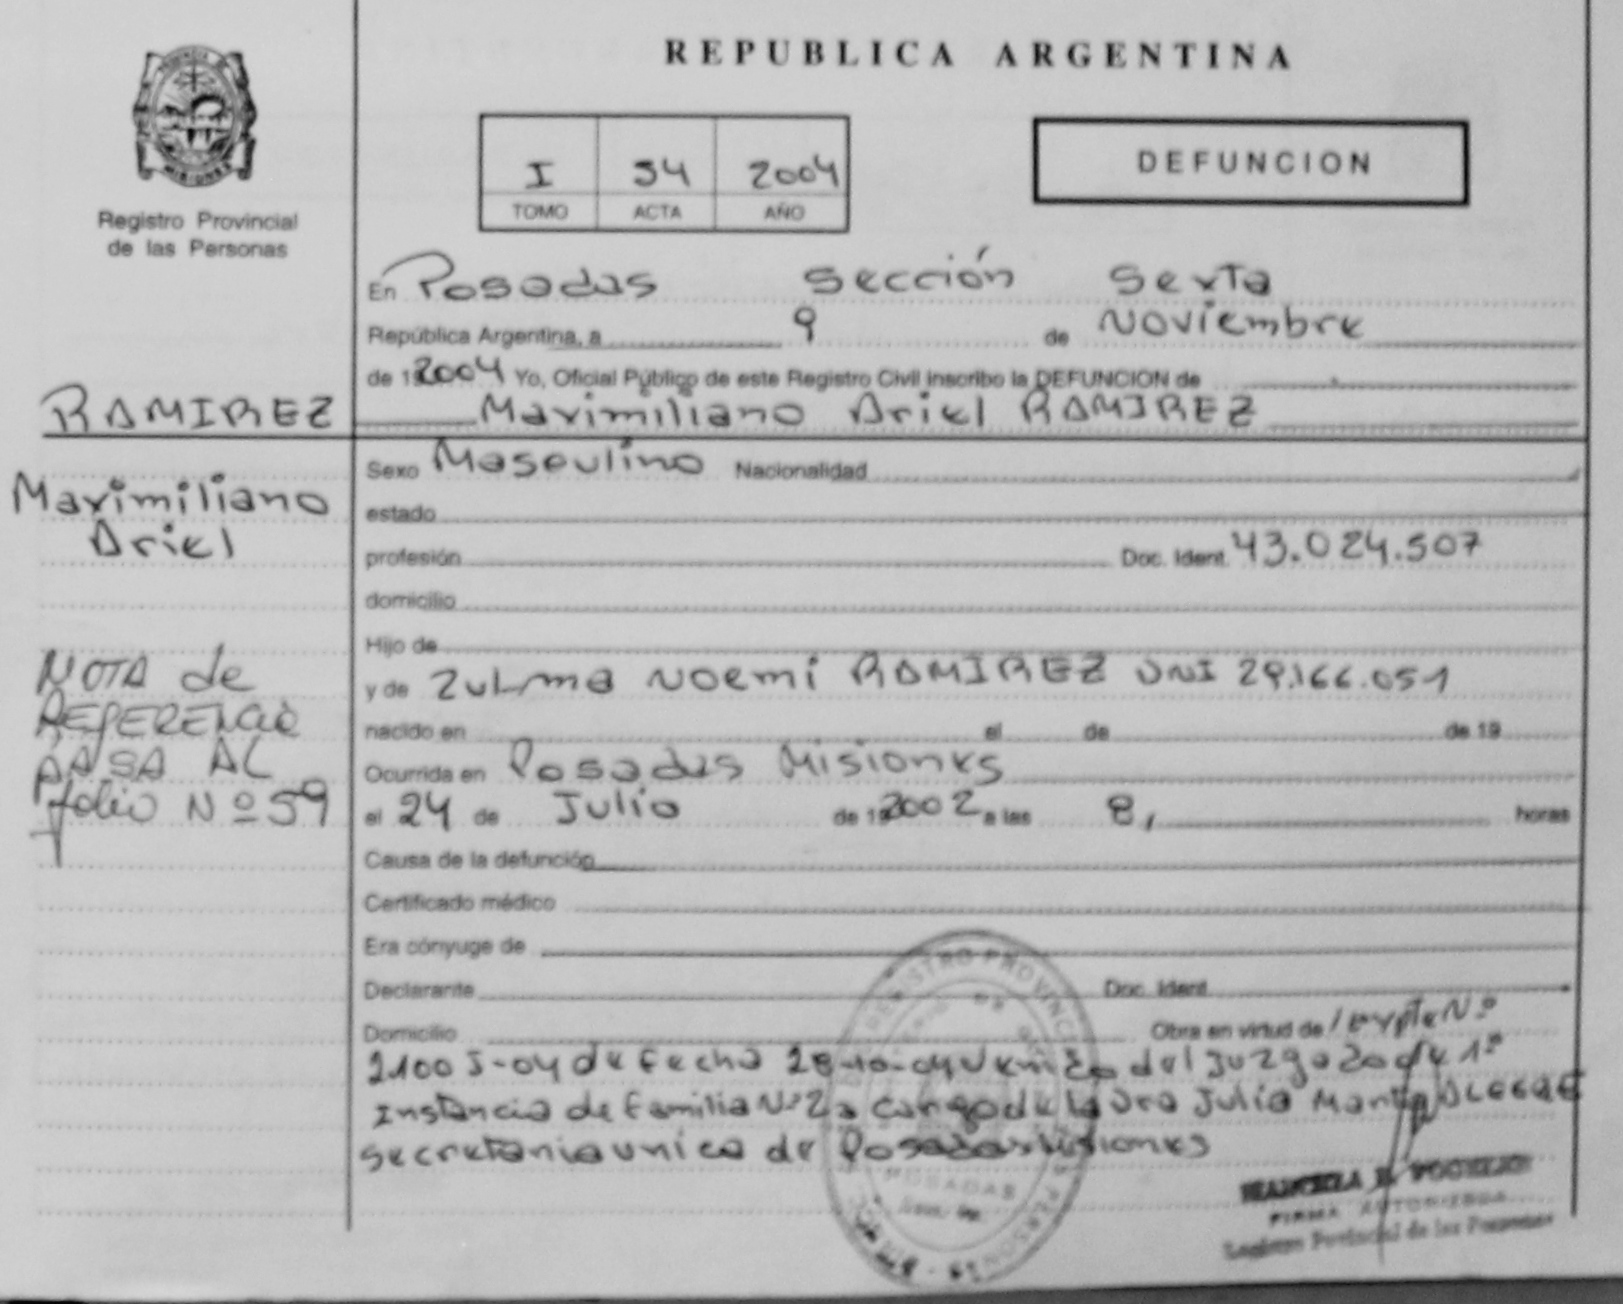 REPUBLICA ARGENTINA
MISIONES
Registro Provincial
de las Personas
I 54 2004
TOMO ACTA AÑO
DEFUNCION
En Posadas Sección Sexta
República Argentina, a 9 de Noviembre
de 19 2004 Yo, Oficial Público de este Registro Civil inscribo la DEFUNCION de
RAMIREZ
Maximiliano Ariel RAMIREZ
Maximiliano
Ariel
Sexo Masculino Nacionalidad
estado
profesión Doc. Ident. 43.024.507
domicilio
Hijo de
y de Zulma Noemi RAMIREZ DNI 29.166.051
nacido en el de de 19
Ocurrida en Posadas Misiones
el 24 de Julio de 19 2002 a las 8, horas
NOTA de
REFERENCIA
PASA AL
folio Nº 59
Causa de la defunción
Certificado médico
Era cónyuge de
Declarante Doc. Ident.
Domicilio Obra en virtud de Expte Nº
2100 J-04 de fecha 28-10-04 del Juzgado de 1º
Instancia de Familia Nº 2 a cargo de la Dra Julia
secretaria unica de Posadas Misiones
REGISTRO PROVINCIAL DE LAS PERSONAS
POSADAS
FIRMA AUTORIZADA
Registro Provincial de las Personas